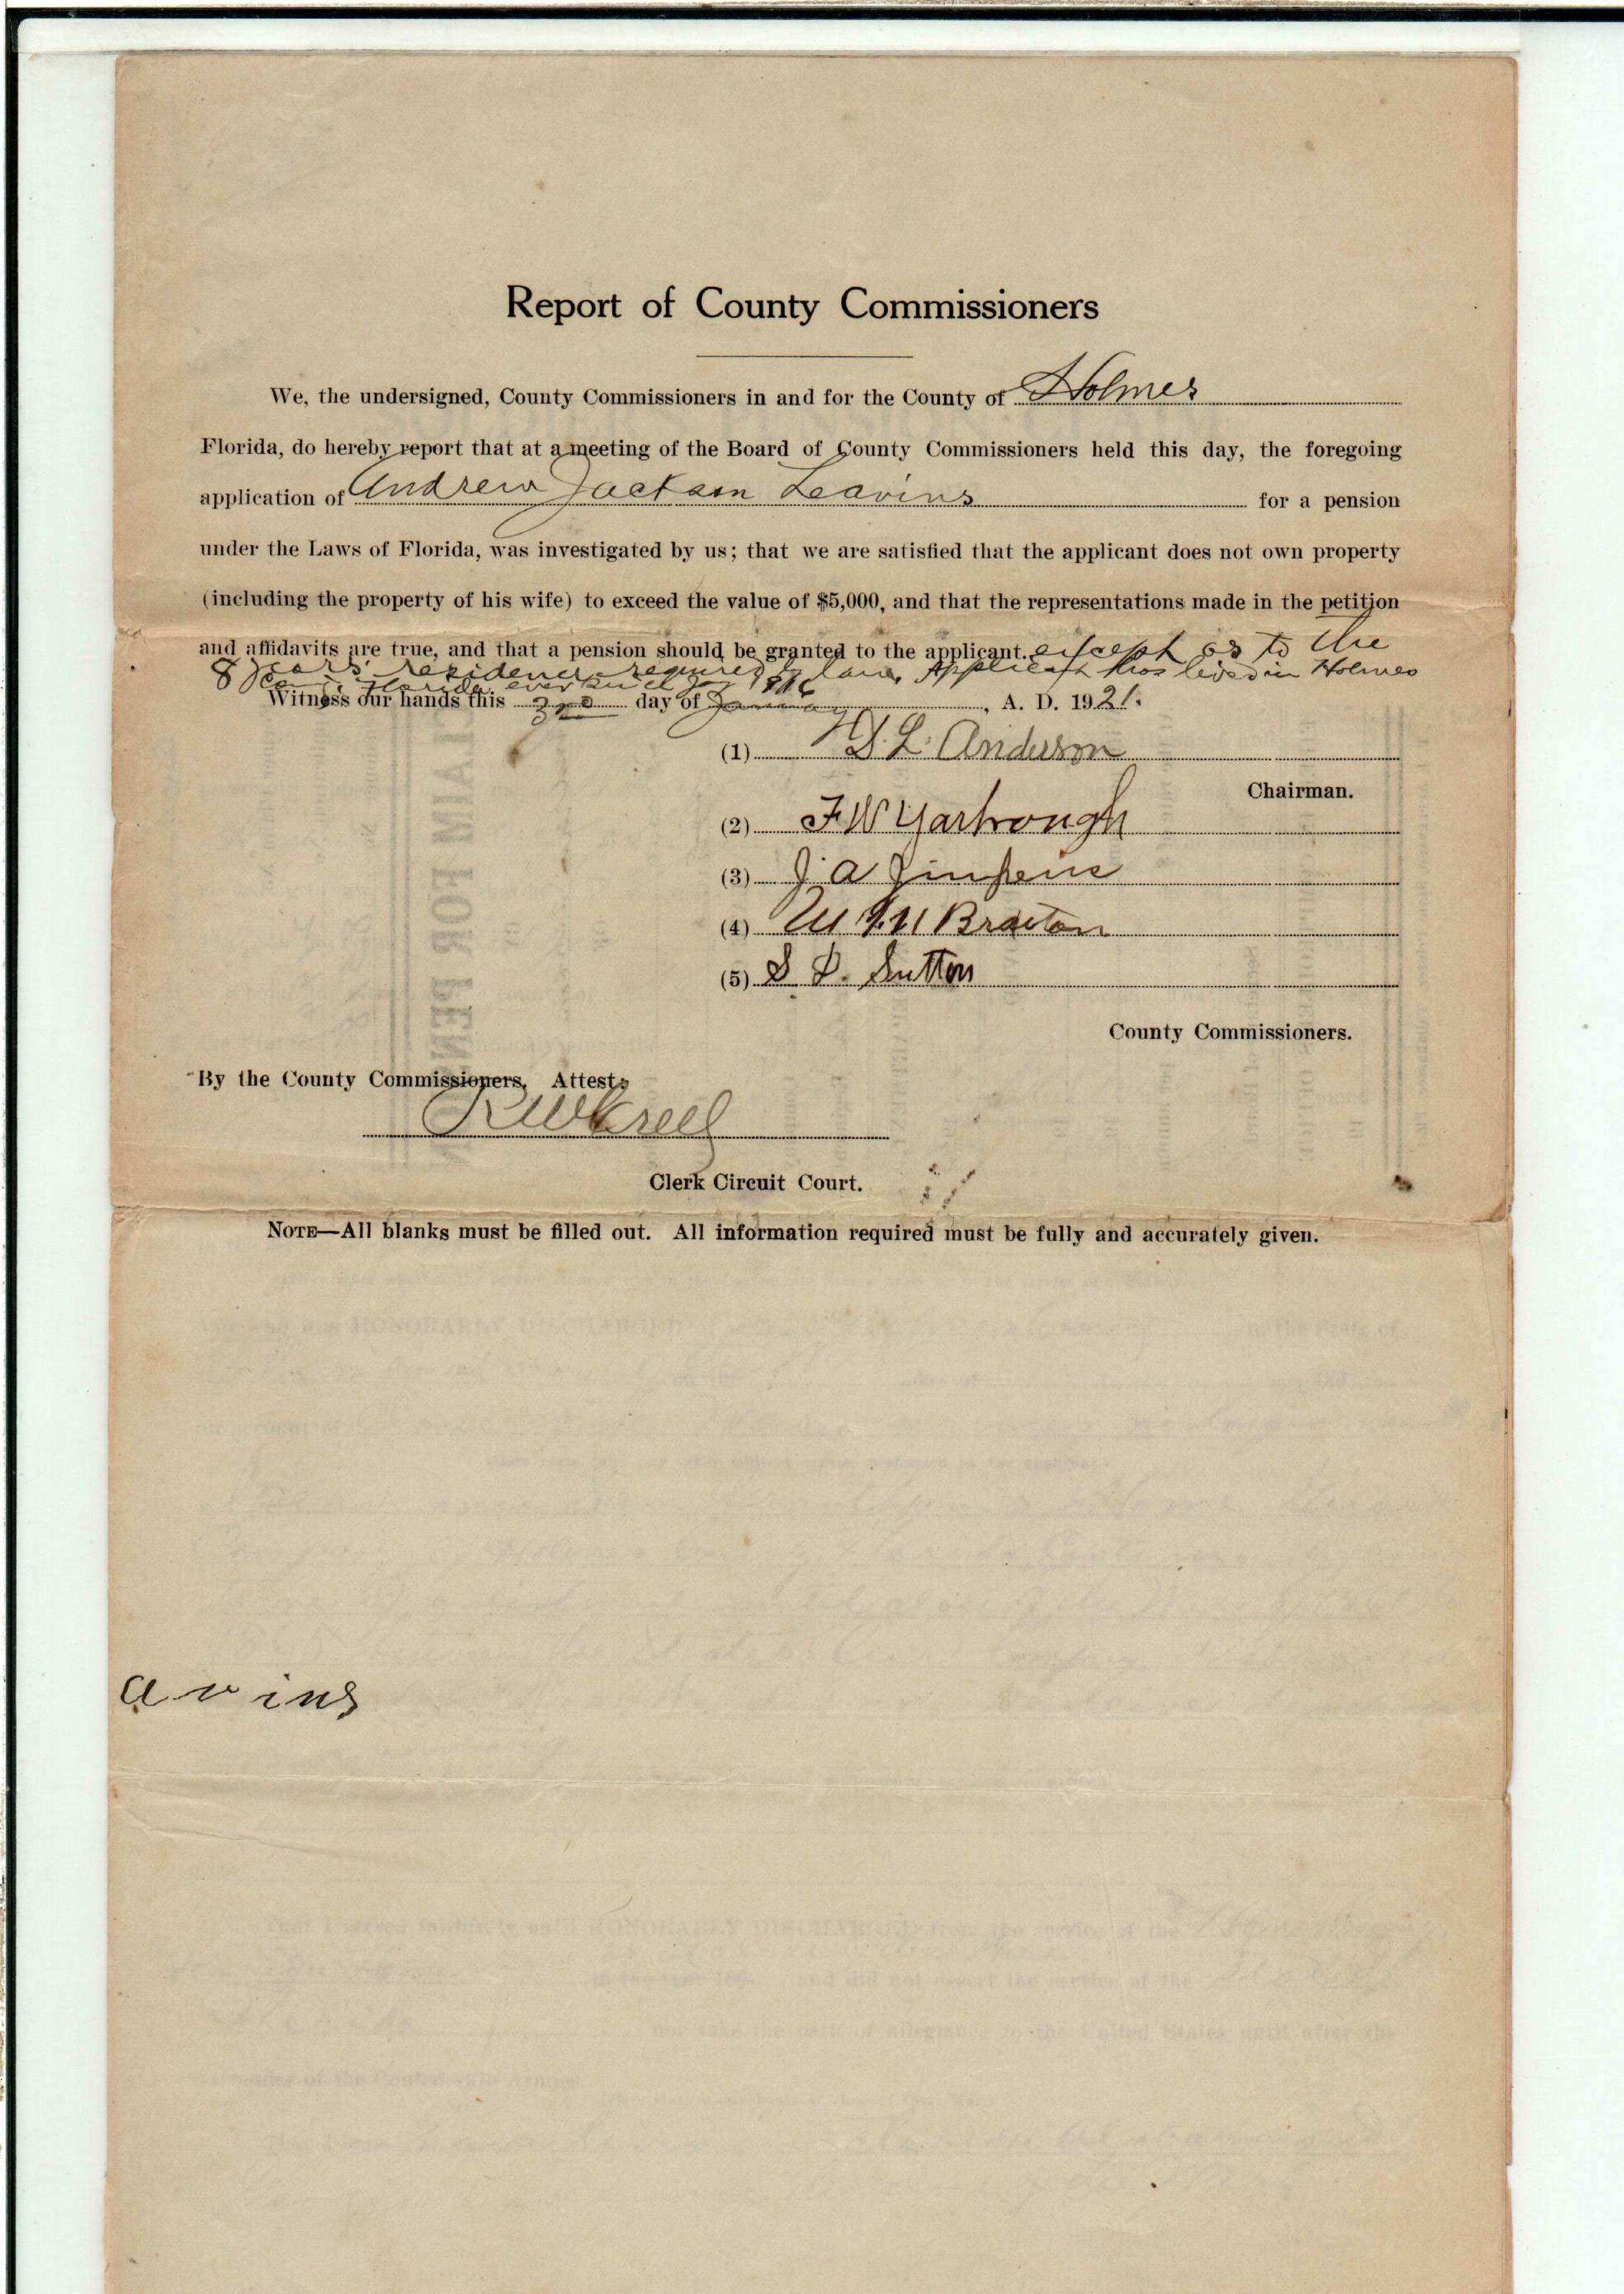 Report of County Commissioners
We, the undersigned, County Commissioners in and for the County of Holmes
Florida, do hereby report that at a meeting of the Board of County Commissioners held this day, the foregoing
application of Andrew Jackson Leavins for a pension
under the Laws of Florida, was investigated by us; that we are satisfied that the applicant does not own property
(including the property of his wife) to exceed the value of $5,000, and that the representations made in the petition
and affidavits are true, and that a pension should be granted to the applicant. except as to the
8 years' residence required by law, Applicant has lived in Holmes
Co. Florida ever since Jan 1916
Witness our hands this 3rd day of January, A. D. 1921.
(1) D. L. Anderson
Chairman.
(2) F W Yarbrough
(3) J. A
(4) Braxton
(5) S. D. Sutton
County Commissioners.
By the County Commissioners, Attest:
R W Creel
Clerk Circuit Court.
NOTE—All blanks must be filled out. All information required must be fully and accurately given.
avins